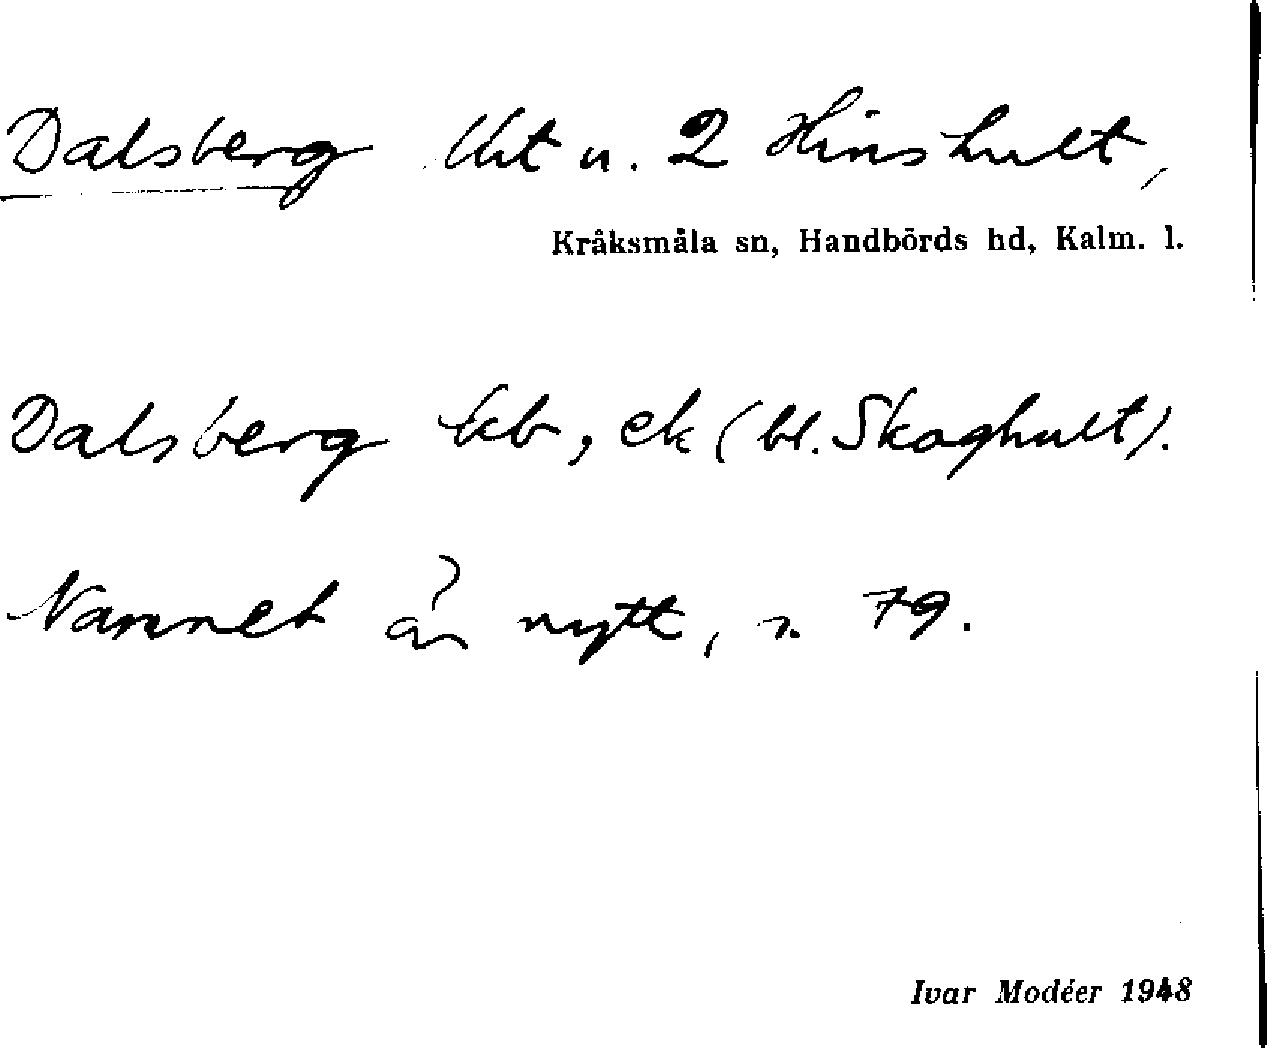 Dalsberg lht u. 2 Hinshult,
Kråksmåla sn, Handbörds hd, Kalm. l.
Dalsberg kb, ek (bl. Skoghult).
Namnet är nytt, s. 79.
Ivar Modéer 1948